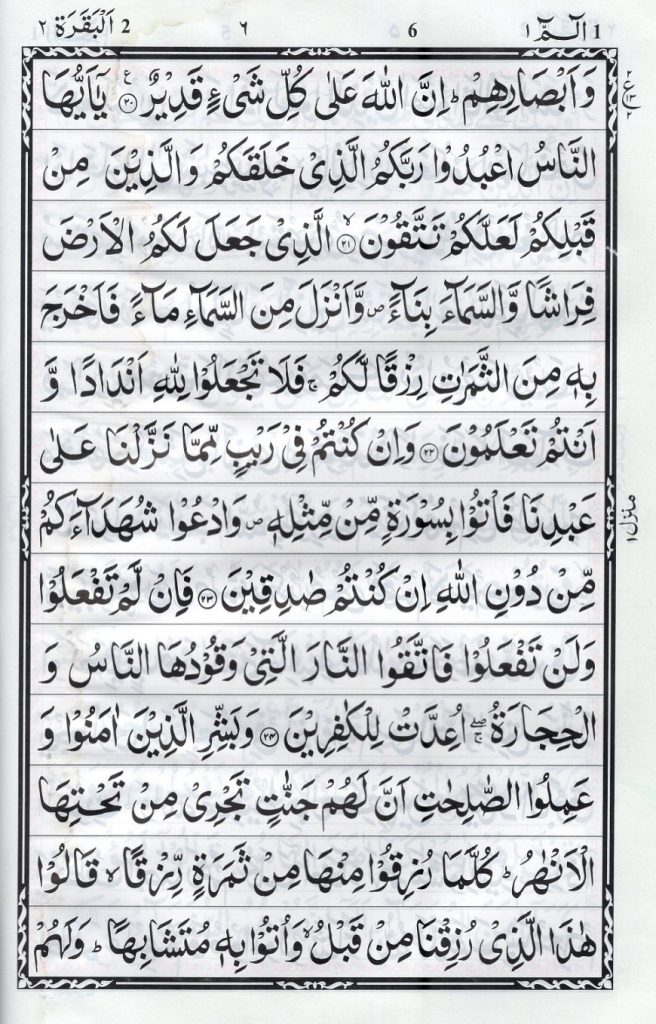 1 الٓمّٓ ۱ 6 ۶ 2 اَلْبَقَرَة ۲
وَاَبْصَارِهِمْ ؕ اِنَّ اللّٰهَ عَلٰى كُلِّ شَىْءٍ قَدِيْرٌ ۟ع ۲۰ يٰۤاَيُّهَا
النَّاسُ اعْبُدُوْا رَبَّكُمُ الَّذِىْ خَلَقَكُمْ وَالَّذِيْنَ مِنْ
قَبْلِكُمْ لَعَلَّكُمْ تَتَّقُوْنَ ۙ ۲۱ الَّذِىْ جَعَلَ لَكُمُ الْاَرْضَ
فِرَاشًا وَّالسَّمَآءَ بِنَآءً ص وَّاَنْزَلَ مِنَ السَّمَآءِ مَآءً فَاَخْرَجَ
بِهٖ مِنَ الثَّمَرٰتِ رِزْقًا لَّكُمْ ۚ فَلَا تَجْعَلُوْا لِلّٰهِ اَنْدَادًا وَّ
اَنْتُمْ تَعْلَمُوْنَ ۲۲ وَاِنْ كُنْتُمْ فِىْ رَيْبٍ مِّمَّا نَزَّلْنَا عَلٰى
عَبْدِنَا فَاْتُوْا بِسُوْرَةٍ مِّنْ مِّثْلِهٖ ص وَادْعُوْا شُهَدَآءَكُمْ
مِّنْ دُوْنِ اللّٰهِ اِنْ كُنْتُمْ صٰدِقِيْنَ ۲۳ فَاِنْ لَّمْ تَفْعَلُوْا
وَلَنْ تَفْعَلُوْا فَاتَّقُوا النَّارَ الَّتِىْ وَقُوْدُهَا النَّاسُ وَ
الْحِجَارَةُ ۖۚ اُعِدَّتْ لِلْكٰفِرِيْنَ ۲۴ وَبَشِّرِ الَّذِيْنَ اٰمَنُوْا وَ
عَمِلُوا الصّٰلِحٰتِ اَنَّ لَهُمْ جَنّٰتٍ تَجْرِىْ مِنْ تَحْتِهَا
الْاَنْهٰرُ ؕ كُلَّمَا رُزِقُوْا مِنْهَا مِنْ ثَمَرَةٍ رِّزْقًا ۙ قَالُوْا
هٰذَا الَّذِىْ رُزِقْنَا مِنْ قَبْلُ ۙ وَاُتُوْا بِهٖ مُتَشَابِهًا ؕ وَلَهُمْ
۲ ع ۱۳ ۲
منزل ۱